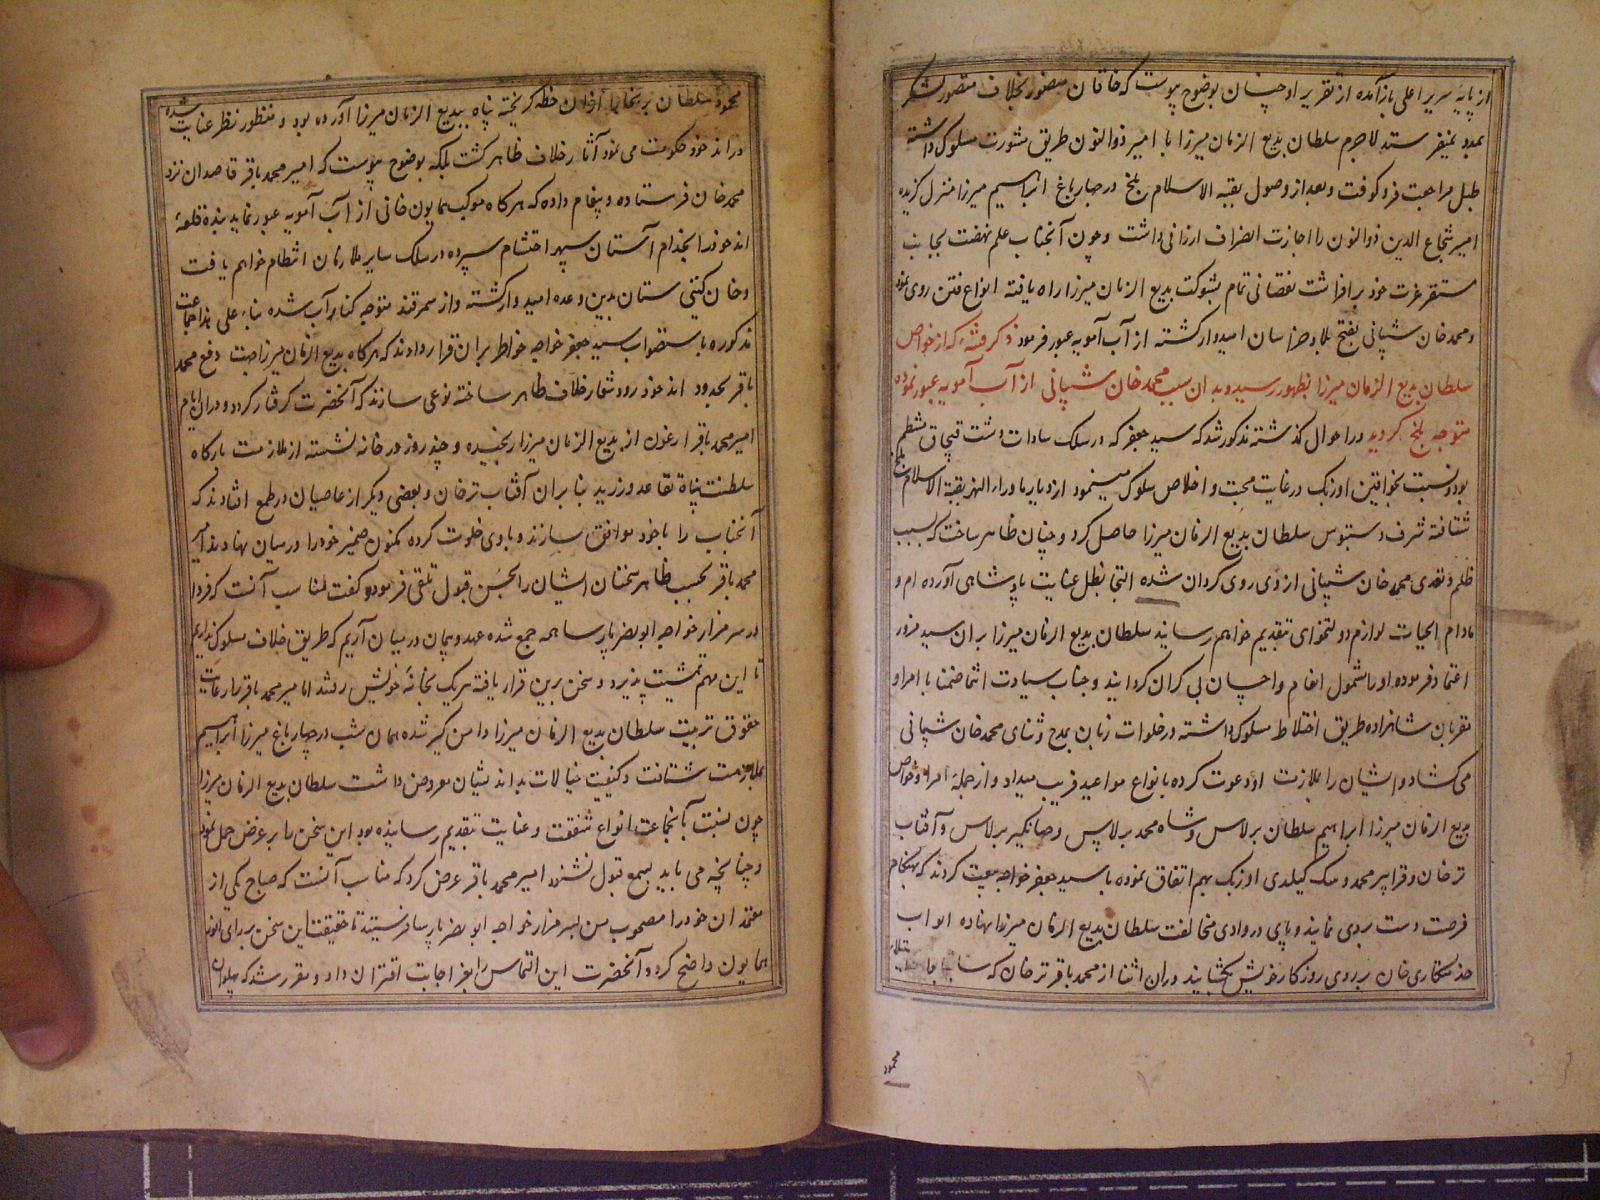 از پایه سریر اعلی بازآمده از تقریر او چنان بوضوح پیوست که خاقان منصور بخلاف متصور لشکر
بمدد نمیفرستد لاجرم سلطان بدیع الزمان میرزا با امیر ذوالنون طریق مشورت مسلوک داشته
طبل مراجعت فرو کوفت و بعد از وصول بقبة الاسلام بلخ در چهارباغ ابراهیم میرزا منزل گزیده
امیر شجاع الدین ذوالنون را اجازت انصراف ارزانی داشت و چون آنجناب علم نهضت بجانب
مستقر عزت خود برافراشت نقصانی تمام بشوکت بدیع الزمان میرزا راه یافته انواع فتن روی نمود
و محمد خان شیبانی بفتح بلاد خراسان امیدوار گشته از آب آمویه عبور فرمود ذکر فتنه که از خواص
سلطان بدیع الزمان میرزا بظهور رسید و بدان سبب محمد خان شیبانی از آب آمویه عبور نموده
متوجه بلخ گردید در احوال گذشته مذکور شد که سید جعفر که در سلک سادات دشت قپچاق منتظم
بود و نسبت بخواقین اوزبک در غایت محبت و اخلاص سلوک مینمود از دیار ماوراء النهر بقبة الاسلام بلخ
شتافته شرف دستبوس سلطان بدیع الزمان میرزا حاصل کرد و چنان ظاهر ساخت که بسبب
ظلم و تعدی محمد خان شیبانی از وی روی گردان شده التجا بظل عنایت پادشاهی آورده ام و
مادام الحیات لوازم دولتخواهی بتقدیم خواهم رسانید سلطان بدیع الزمان میرزا بران سید مزور
اعتماد فرموده او را شمول انعام و احسان بی کران گردانید و جناب سیادت انتما ضمنا با امرا و
مقربان شاهزاده طریق اختلاط مسلوک داشته در خلوات زبان بمدح و ثنای محمد خان شیبانی
می گشاد و ایشان را بملازمت او دعوت کرده بانواع مواعید فریب میداد و از جمله امرا و خواص
بدیع الزمان میرزا ابراهیم سلطان برلاس و شاه محمد برلاس و جهانگیر برلاس و آفتاب
ترخان و قرا پیر محمد و منک کیلدی اوزبک بهم اتفاق نموده با سید جعفر خواجه بیعت کردند که بهنگام
فرصت دست بردی نمایند و پای در وادی مخالفت سلطان بدیع الزمان میرزا نهاده ابواب
خدمتکاری خان بر روی روزکار خویش بگشایند دران اثنا از محمد باقر ترخان که سابقا با
محمود
محمود سلطان بر بخارا ازان خطه گریخته پناه ببدیع الزمان میرزا آورده بود و منظور نظر عنایت شده
در اندخود حکومت می نمود آثار خلاف ظاهر گشت بلکه بوضوح پیوست که امیر محمد باقر قاصدان نزد
محمد خان فرستاده و پیغام داده که هرگاه موکب همایون خانی از آب آمویه عبور نماید بنده قلعه
اندخود را بخدام آستان سپهر احتشام سپرده در سلک سایر ملازمان انتظام خواهم یافت
و خان گیتی ستان بدین وعده امیدوار گشته و از سمرقند متوجه کنار آب شده بناء علی هذا جماعت
مذکوره باستصواب سید جعفر خواجه خواطر بران قرار دادند که هرگاه بدیع الزمان میرزا جهت دفع محمد
باقر بحدود اندخود رود شعار خلاف ظاهر ساخته نوعی سازند که آنحضرت گرفتار گردد و دران ایام
امیر محمد باقر ارغون از بدیع الزمان میرزا رنجیده و چند روز در خانه نشسته از ملازمت بارگاه
سلطنت پناه تقاعد ورزید بنابران آفتاب ترخان و بعضی دیگر از عاصیان در طمع افتادند که
آنجناب را با خود موافق سازند و با وی خلوت کرده مکنون ضمیر خود را در میان نهادند امیر
محمد باقر بحسب ظاهر سخنان ایشان را بحسن قبول تلقی فرموده گفت مناسب آنست که فردا
در سر مزار خواجه ابو نصر پارسا همه جمع شده عهد و پیمان در میان آریم که طریق خلاف مسلوک نداریم
تا این مهم تمشیت پذیرد و سخن برین قرار یافته هریک بخانه خویش رفتند اما امیر محمد باقر را رعایت
حقوق تربیت سلطان بدیع الزمان میرزا دامن گیر شده همان شب در چهارباغ میرزا ابراهیم
بملازمت شتافت و کیفیت خیالات بداندیشان معروض داشت سلطان بدیع الزمان میرزا
چون نسبت بآنجماعت انواع شفقت و عنایت بتقدیم رسانیده بود این سخن را بر غرض حمل نموده
و چنانچه می باید بسمع قبول نشنود امیر محمد باقر عرض کرد که مناسب آنست که صباح یکی از
معتمدان خود را مصحوب من بسر مزار خواجه ابو نصر پارسا فرستید تا حقیقت این سخن بر رای انور
همایون واضح گردد و آنحضرت این التماس را بعز اجابت اقتران داد و مقرر شد که پهلوان